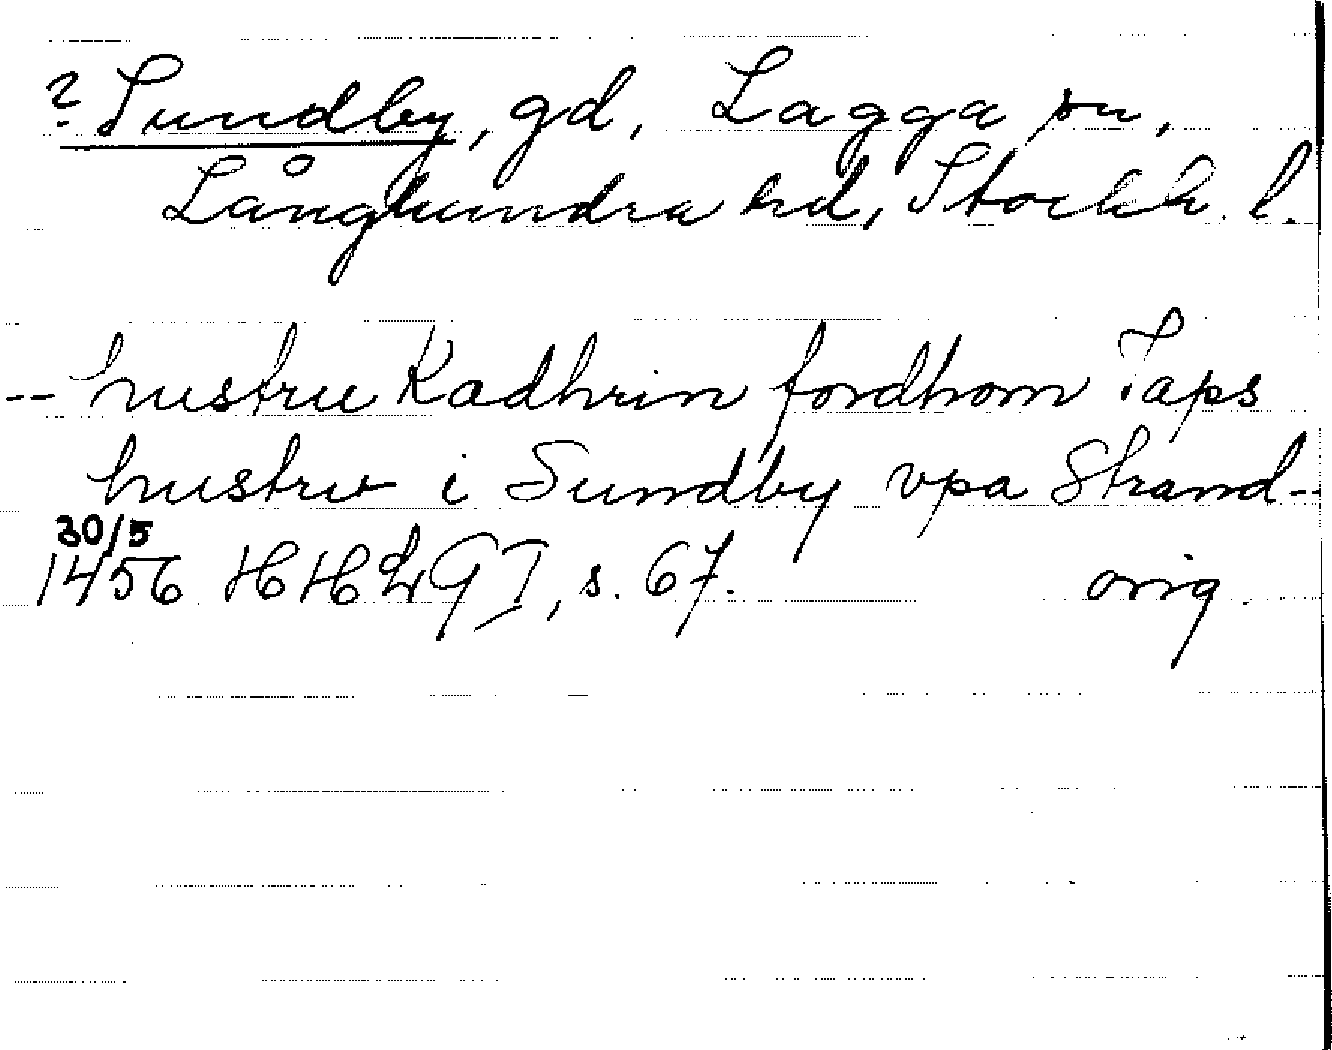 ? Sundby, gd, Lagga sn,
Långhundra hd, Stockh. l.
-- hustru Kadhrin fordhom Taps
hustrv i Sundby vpa Strand--
30/5
1456 HHLG I, s. 67. orig.